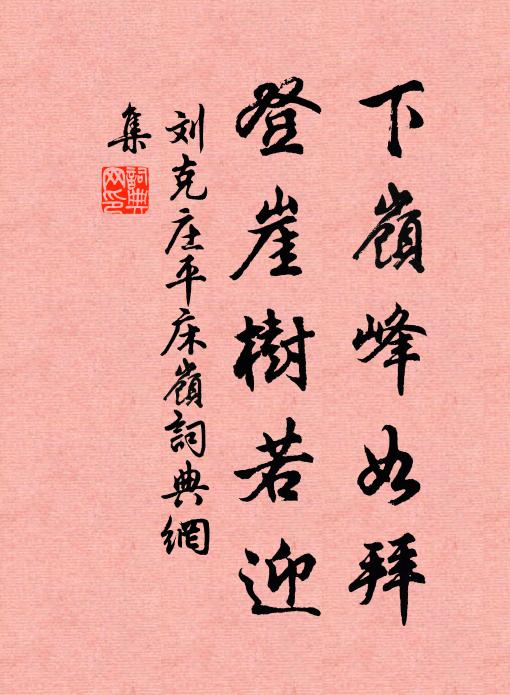 下嶺峰如拜
登崖樹若迎
刘克庄平床嶺詞典網
集
詞典网印